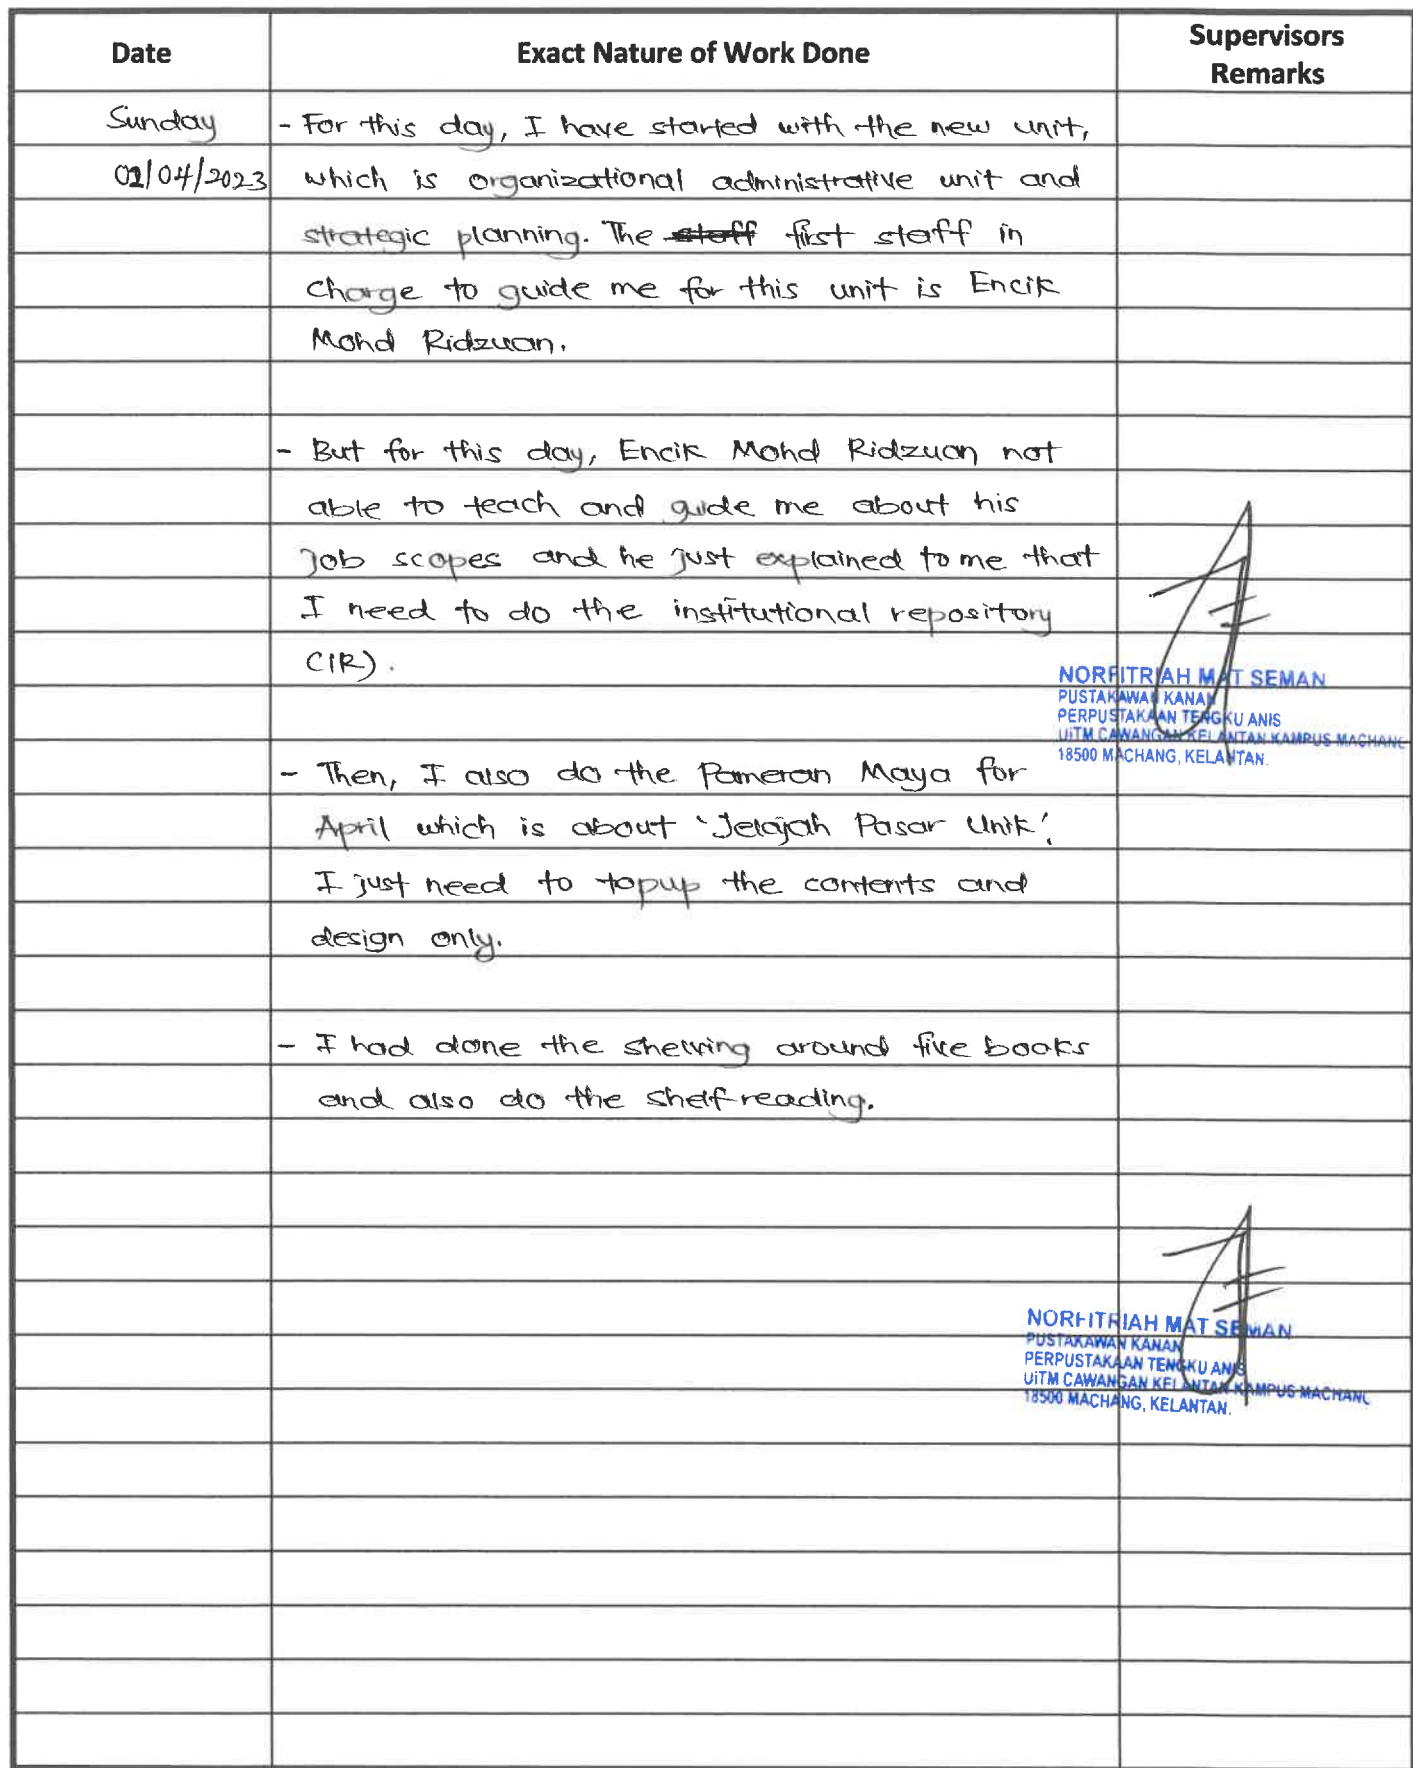 Date
Exact Nature of Work Done
Supervisors
Remarks
Sunday
02/04/2023
- For this day, I have started with the new unit,
which is organizational administrative unit and
strategic planning. The staff first staff in
charge to guide me for this unit is Encik
Mohd Ridzuan.
- But for this day, Encik Mohd Ridzuan not
able to teach and guide me about his
job scopes and he just explained to me that
I need to do the institutional repository
(IR).
NORFITRIAH MAT SEMAN
PUSTAKAWAN KANAN
PERPUSTAKAAN TENGKU ANIS
UiTM CAWANGAN KELANTAN KAMPUS MACHANG
18500 MACHANG, KELANTAN.
- Then, I also do the Pameran Maya for
April which is about 'Jelajah Pasar Unik'.
I just need to topup the contents and
design only.
- I had done the shelving around five books
and also do the shelf reading.
NORFITRIAH MAT SEMAN
PUSTAKAWAN KANAN
PERPUSTAKAAN TENGKU ANIS
UiTM CAWANGAN KELANTAN KAMPUS MACHANG
18500 MACHANG, KELANTAN.